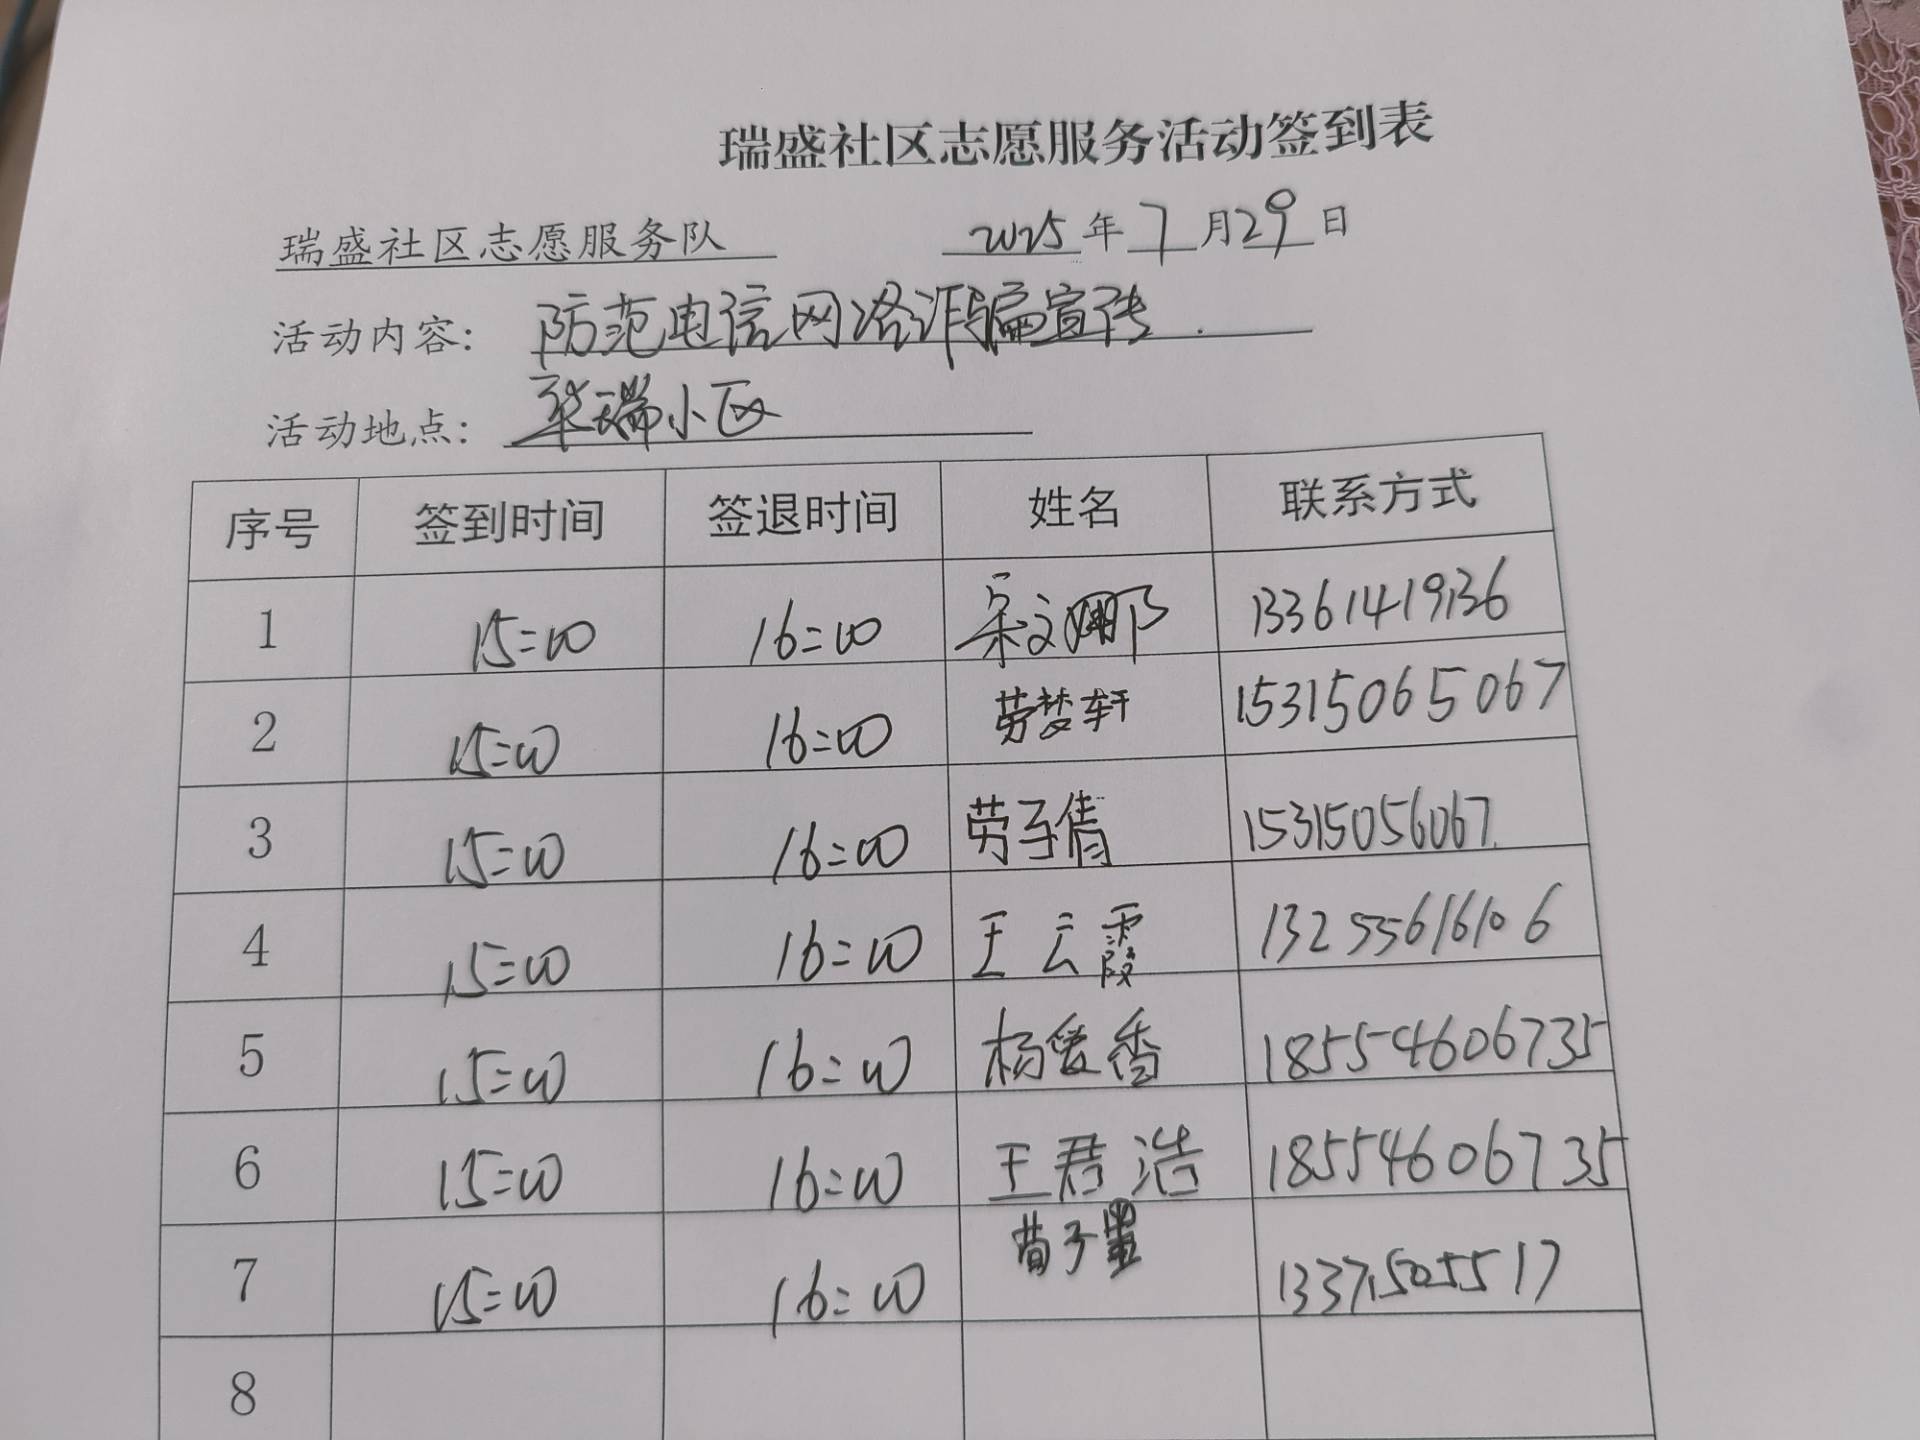 瑞盛社区志愿服务活动签到表
瑞盛社区志愿服务队 2025年7月29日
活动内容: 防范电信网络诈骗宣传.
活动地点: 华瑞小区
序号 签到时间 签退时间 姓名 联系方式
1 15=00 16=00 宋文娜 13361419136
2 15=00 16=00 劳梦轩 15315065067
3 15=00 16=00 劳子倩 15315056067.
4 15=00 16=00 王云霞 13255616106
5 15=00 16=00 杨爱香 18554606735
6 15=00 16=00 王君浩 18554606735
7 15=00 16=00 13371505517
8